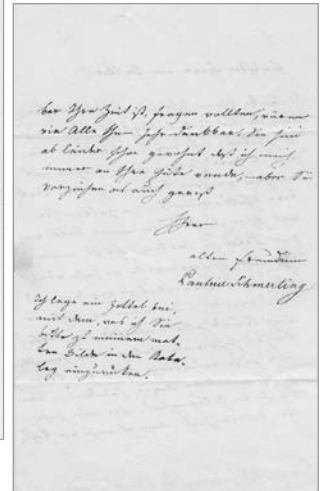 ber Ihre Zeit ist, fragen wollten, wären
wir Alle Ihnen sehr dankbar. Sie sind
es leider schon gewohnt daß ich mich
immer an Ihre Güte wende, – aber Sie
verzeihen es auch gewiß
Ihrer
alten Freundin
Pauline Schmerling
Ich lege ein Zettel bei,
mit dem, was ich Sie
bitte zu meinem
Bilde in den Kata-
log einzurücken.